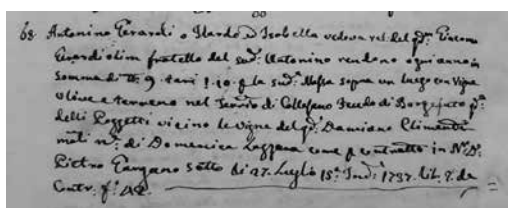 68 Antonino Gerardi o Ilardo, e Isobella vedova rel. del qm. Giacomo
Gerardi olim fratello del sud.o Antonino rendono ogni anno in
somma di 9. tarì 1.10. p la sud.a Massa sopra un luogo con vigne
olive e terreno nel Terr.rio di Collesano Feudo di
delli Poggetti vicino le vigne del qm. Damiano Climenti
di Domenica come p contratto in N.r D.
Pietro Gargano sotto li 27. Luglio 15.a Ind. 1737. lib. 2. de
Contr. f.